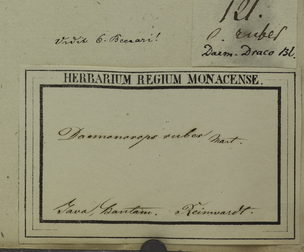 121.
C. ruber
Daem. Draco Bl.
Vidit O. Beccari!
HERBARIUM REGIUM MONACENSE.
Daemonorops ruber Mart.
Java, Bantam. Reinwardt.